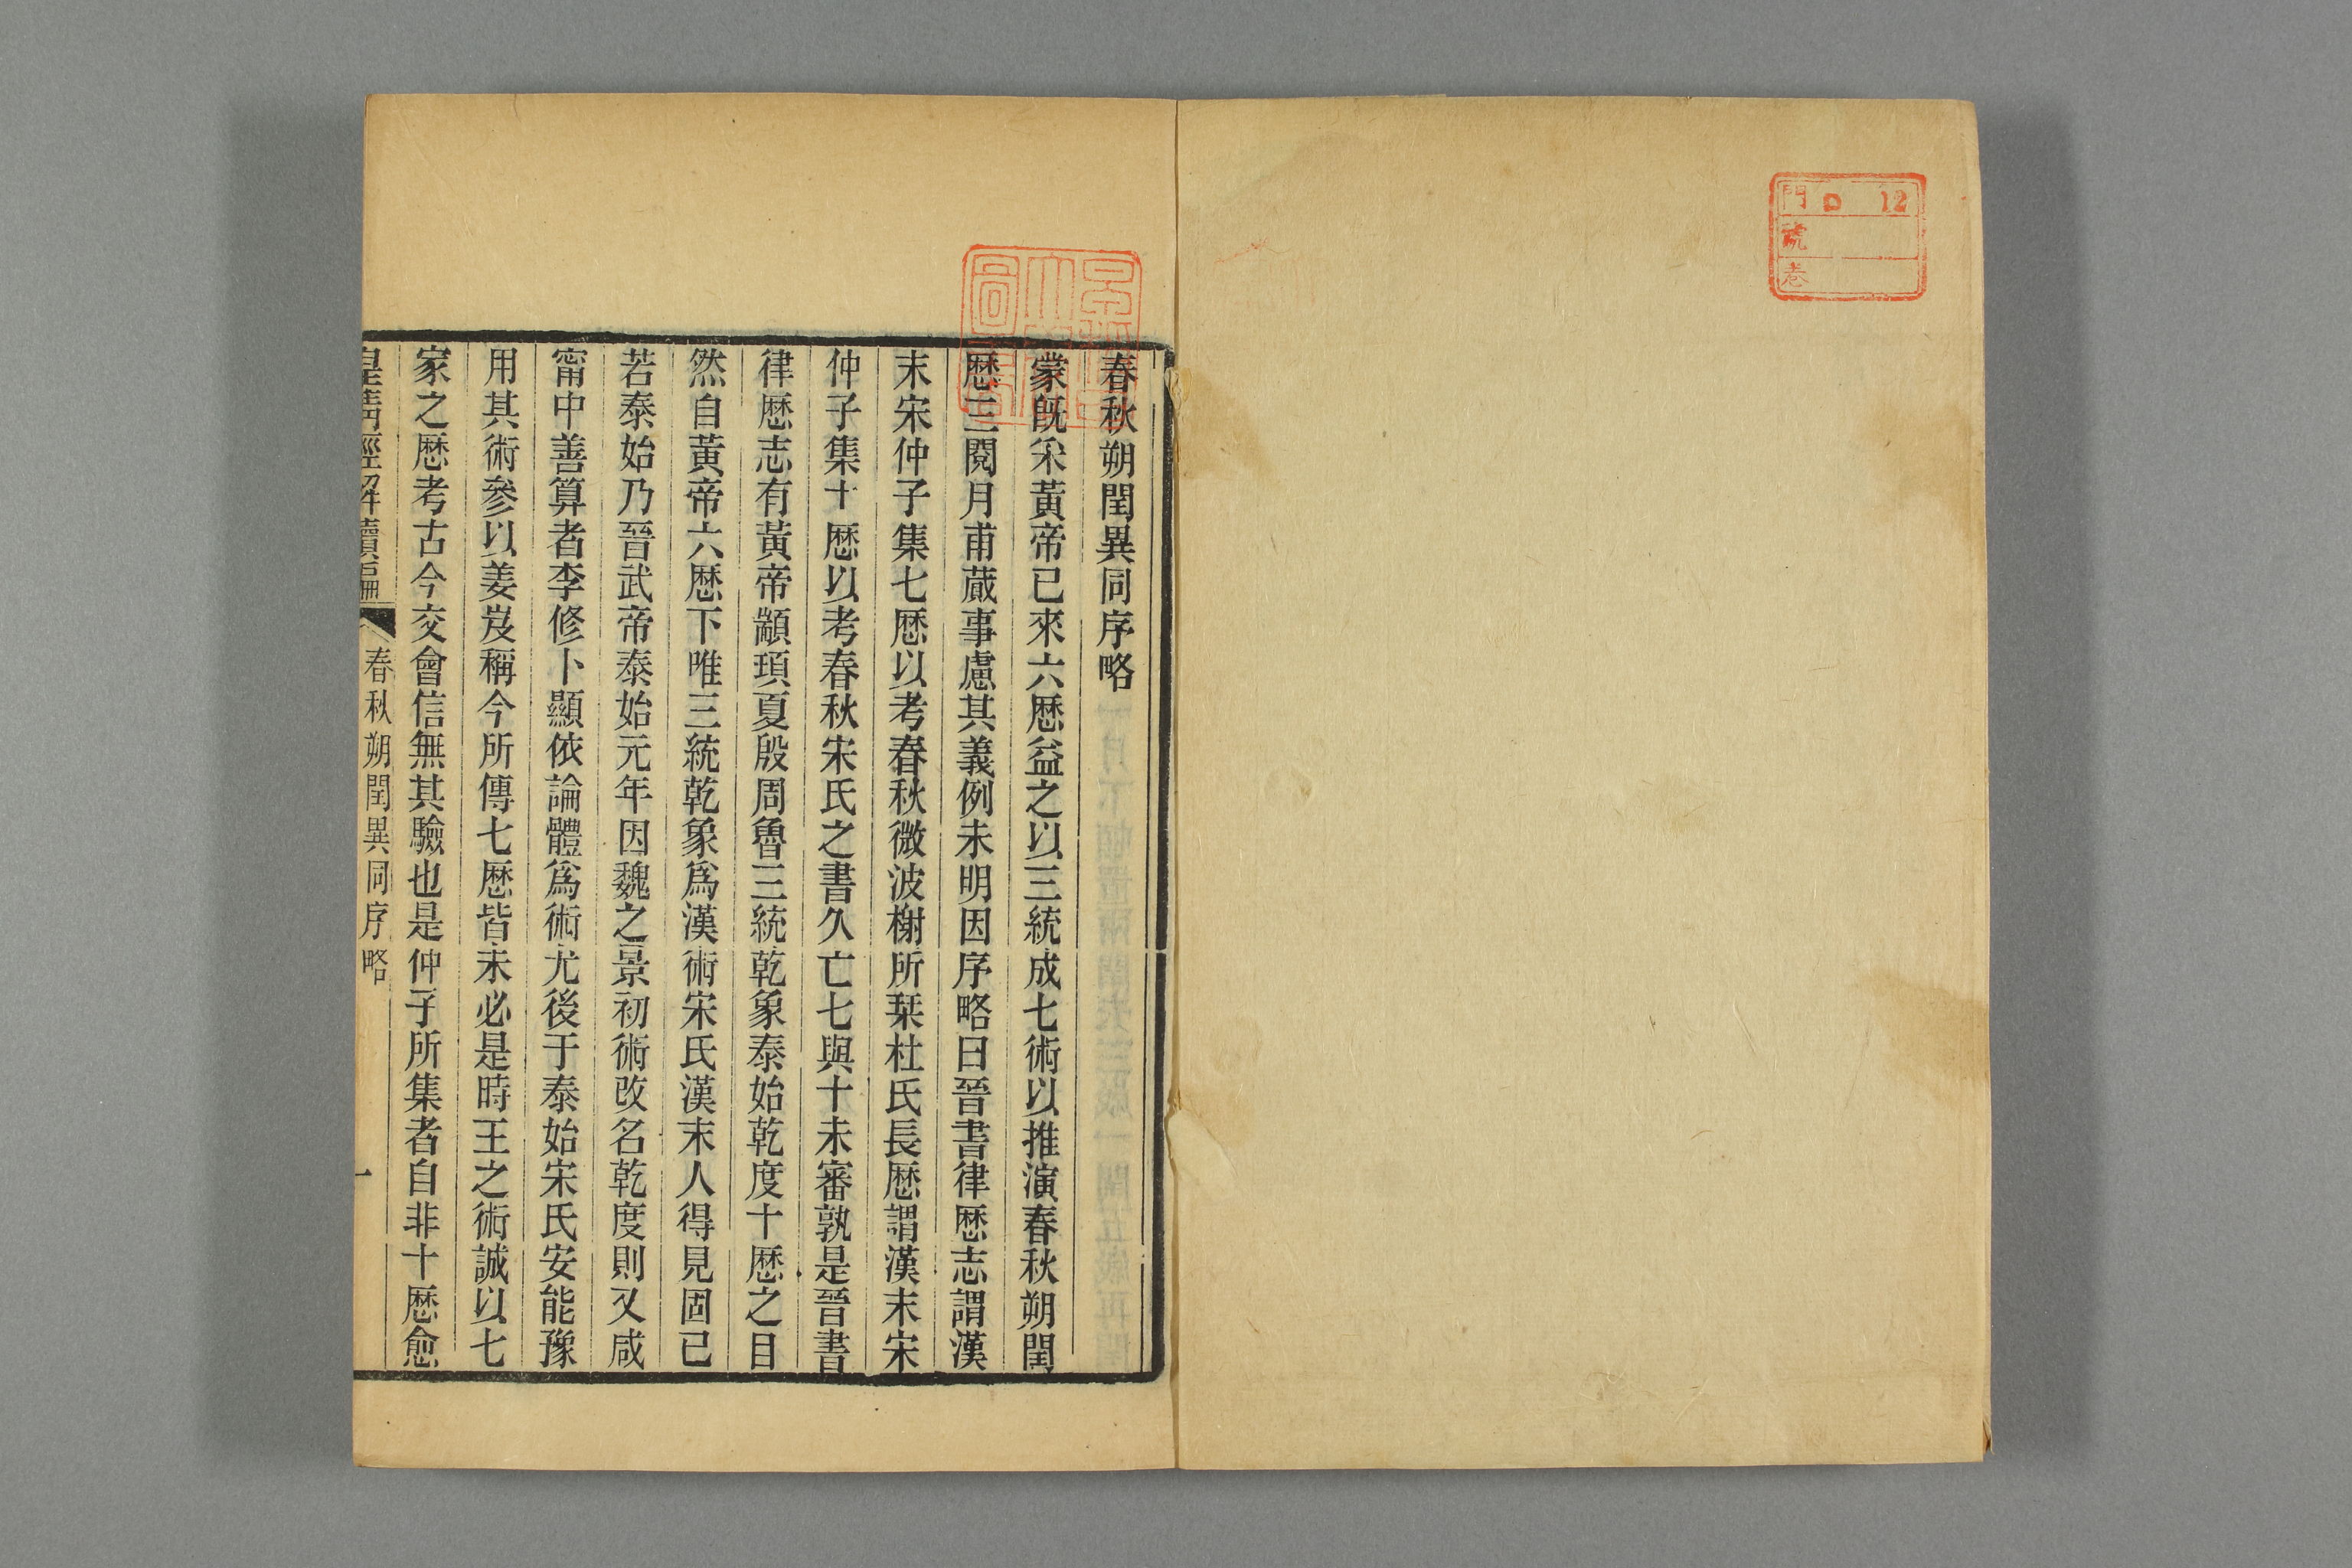 門 12
號
卷
春秋朔閏異同序略
蒙旣釆黃帝已來六歴益之以三統成七術以推演春秋朔閏
歴三閱月甫蕆事慮其義例未明因序略曰晉書律歴志謂漢
末宋仲子集七歴以考春秋微波榭所栞杜氏長歴謂漢末宋
仲子集十歴以考春秋宋氏之書久亡七與十未審孰是晉書
律歴志有黃帝顓頊夏殷周魯三統乾象泰始乾度十歴之目
然自黃帝六歴下唯三統乾象爲漢術宋氏漢末人得見固已
若泰始乃晉武帝泰始元年因魏之景初術改名乾度則又咸
甯中善算者李修卜顯依論體爲術尤後于泰始宋氏安能豫
用其術參以姜岌稱今所傳七歴皆未必是時王之術誠以七
家之歴考古今交會信無其驗也是仲子所集者自非十歴愈
皇淸經解續編 春秋朔閏異同序略 一